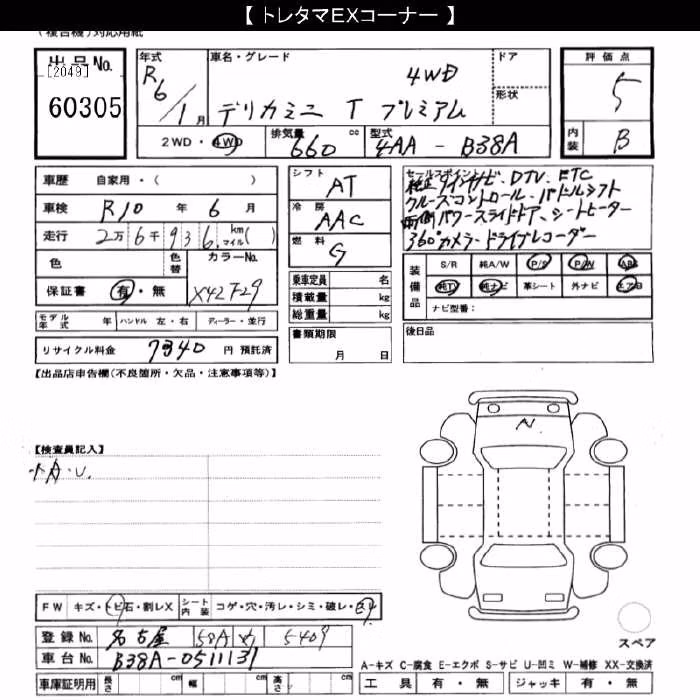 【 トレタマEXコーナー 】
(複合機)対応用紙
出品No.
[2049]
60305
年式
R6/1月
車名・グレード
4WD
デリカミニ T プレミアム
ドア
形状
評価点
5
内装
B
2WD・4WD
排気量
660 cc
型式
4AA - B38A
車歴 自家用・( )
車検 R10 年 6 月
走行 2万6千936 km マイル( )
色
色替
カラーNo.
X42729
保証書 有・無
モデル年式 年 ハンドル 左・右 ディーラー・並行
リサイクル料金 7340 円 預託済
シフト AT
冷房 AAC
燃料 G
乗車定員 名
積載量 kg
総重量 kg
書類期限
月 日
セールスポイント
純正9インチナビ、DTV、ETC
クルーズコントロール、パドルシフト
両側パワースライドドア、シートヒーター
360°カメラ・ドライブレコーダー
装備品
S/R 純A/W P/S P/W ABS
純TV 純ナビ 革シート 外ナビ エアB
ナビ型番:
後日品
【出品店申告欄(不良箇所・欠品・注意事項等)】
【検査員記入】
小A・U.
FW キズ・トビ石・割レX
シート内装 コゲ・穴・汚レ・シミ・破レ・スレ
登録No. 名古屋 58A 5409
車台No. B38A-0511131
車庫証明用 長さ cm 幅 cm 高さ cm
スペア
A-キズ C-腐食 E-エクボ S-サビ U-凹ミ W-補修 XX-交換済
工具 有・無 ジャッキ 有・無